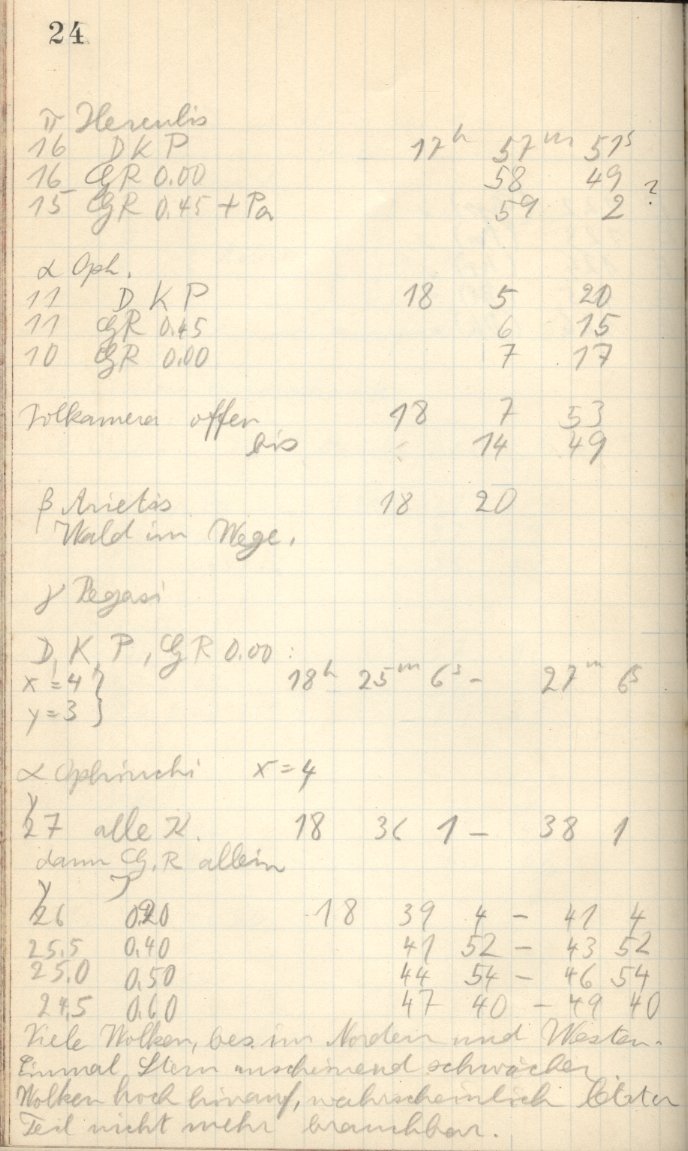 24
π Herculis
16 D K P 17h 57m 51s
16 GR 0.00 58 49
15 GR 0.45 + Pa 59 2 ?
α Oph.
11 D K P 18 5 20
11 GR 0.45 6 15
10 GR 0.00 7 17
offen 18 7 53
bis 14 49
β Arietis 18 20
Wald im Wege.
γ Pegasi
D, K, P, GR 0.00:
x = 4 } 18h 25m 6s - 27m 6s
y = 3 }
α Ophiuchi x = 4
y
27 alle K. 18 36 1 - 38 1
dann G, R allein
y J
26 0.20 18 39 4 - 41 4
25,5 0,40 41 52 - 43 52
25,0 0,50 44 54 - 46 54
24,5 0,60 47 40 - 49 40
Viele Wolken, bes. im Norden und Westen.
Einmal Stern anscheinend schwächer
Wolken hoch hinauf, wahrscheinlich letzter
Teil nicht mehr brauchbar.